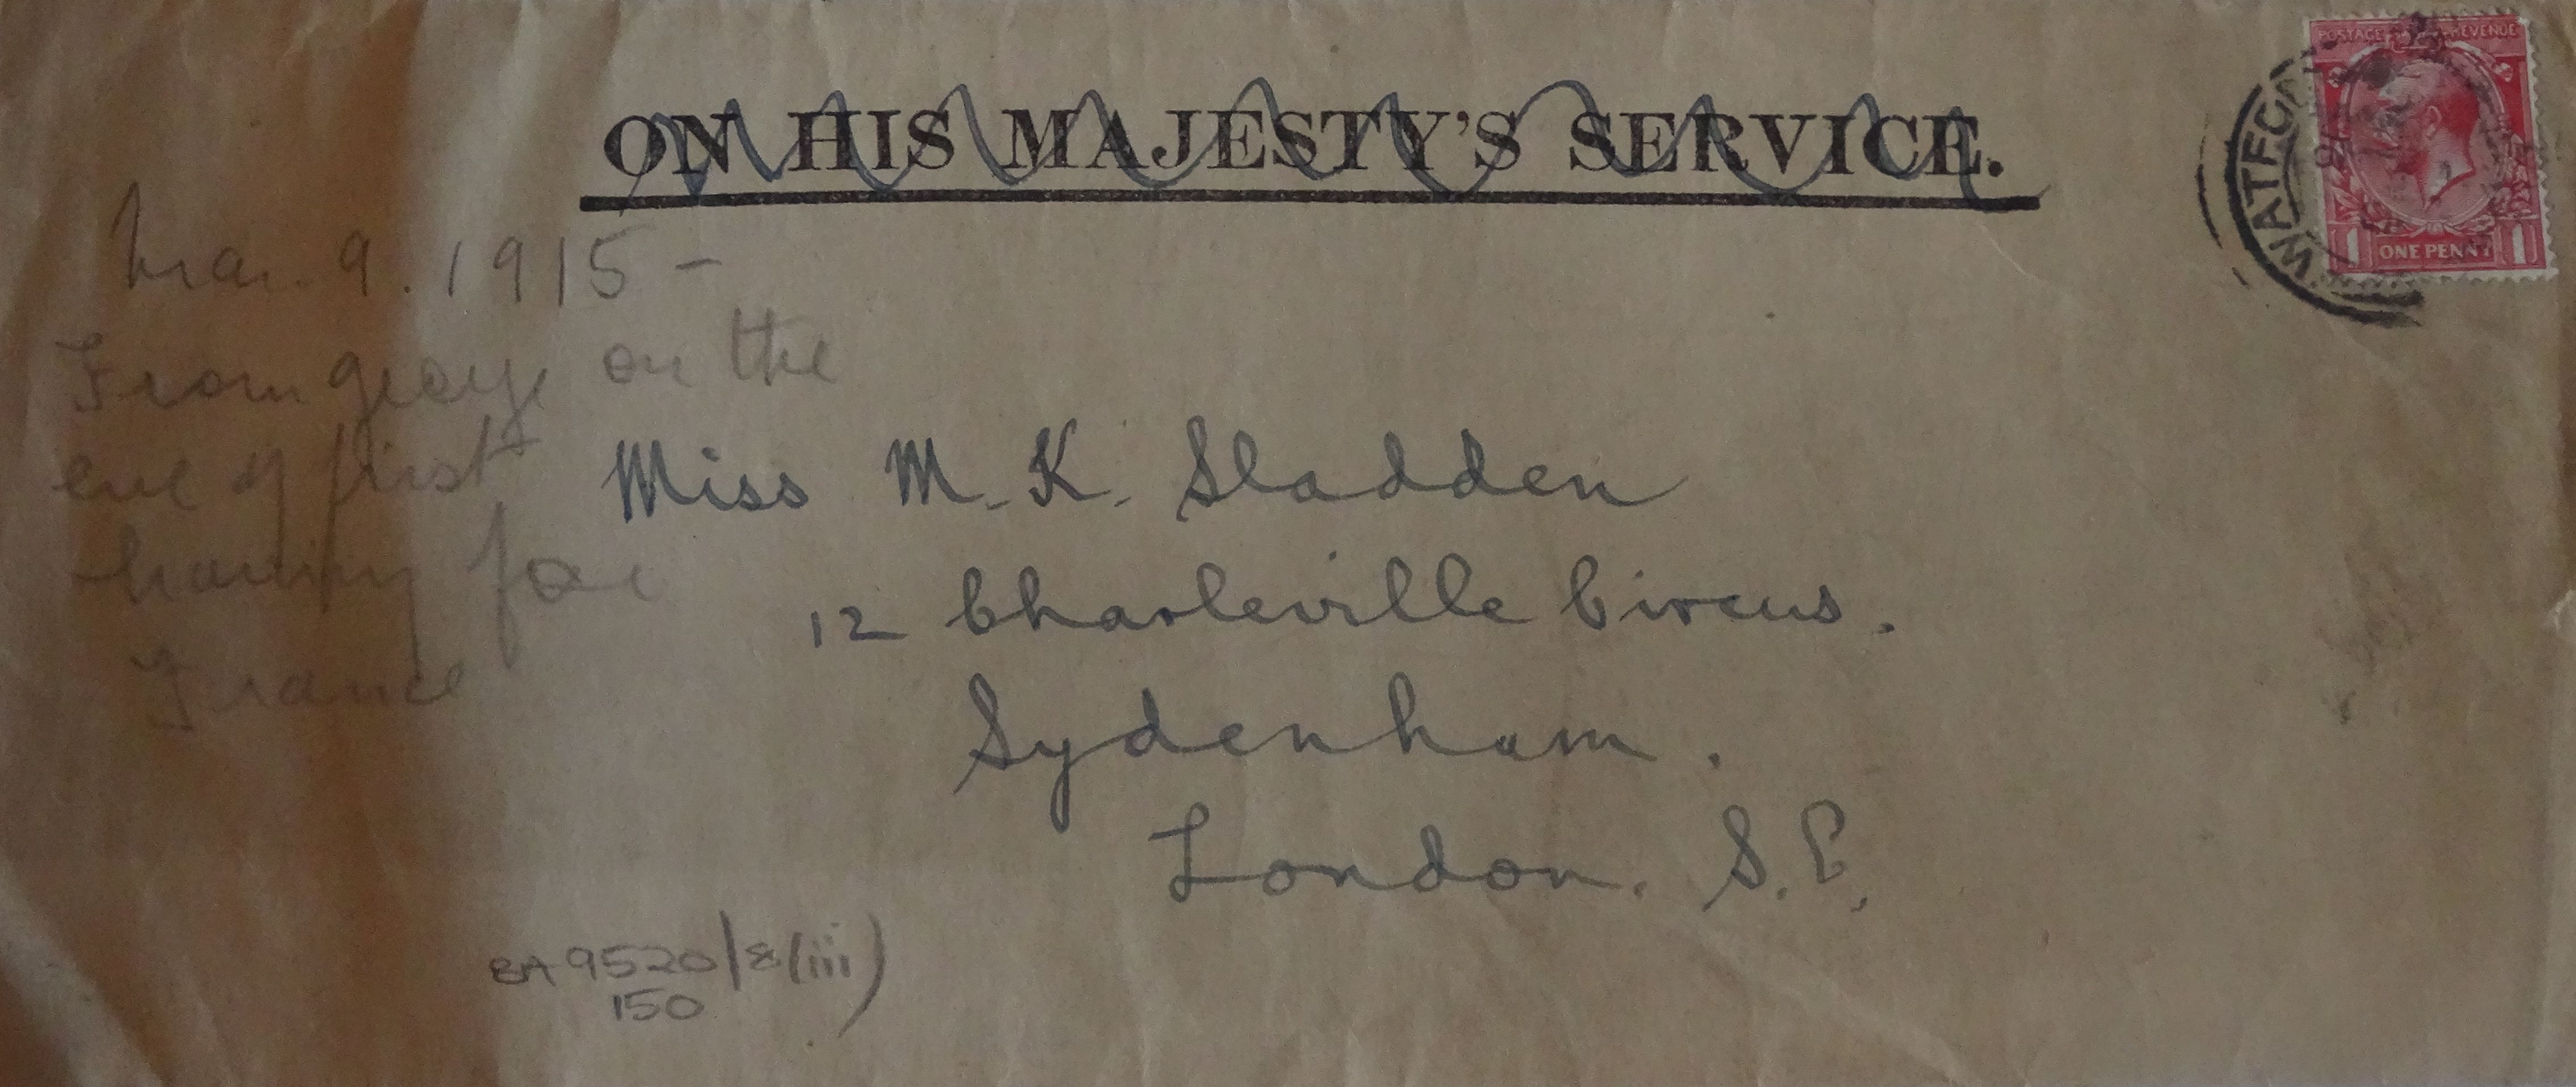 ON HIS MAJESTY'S SERVICE.
POSTAGE REVENUE
1 ONE PENNY 1
WATFORD
Mar. 9. 1915 -
From George on the
eve of first
leaving for
France
Miss M. K. Sladden
12 Charleville Circus.
Sydenham.
London. S.E.
9520/8(iii)
150